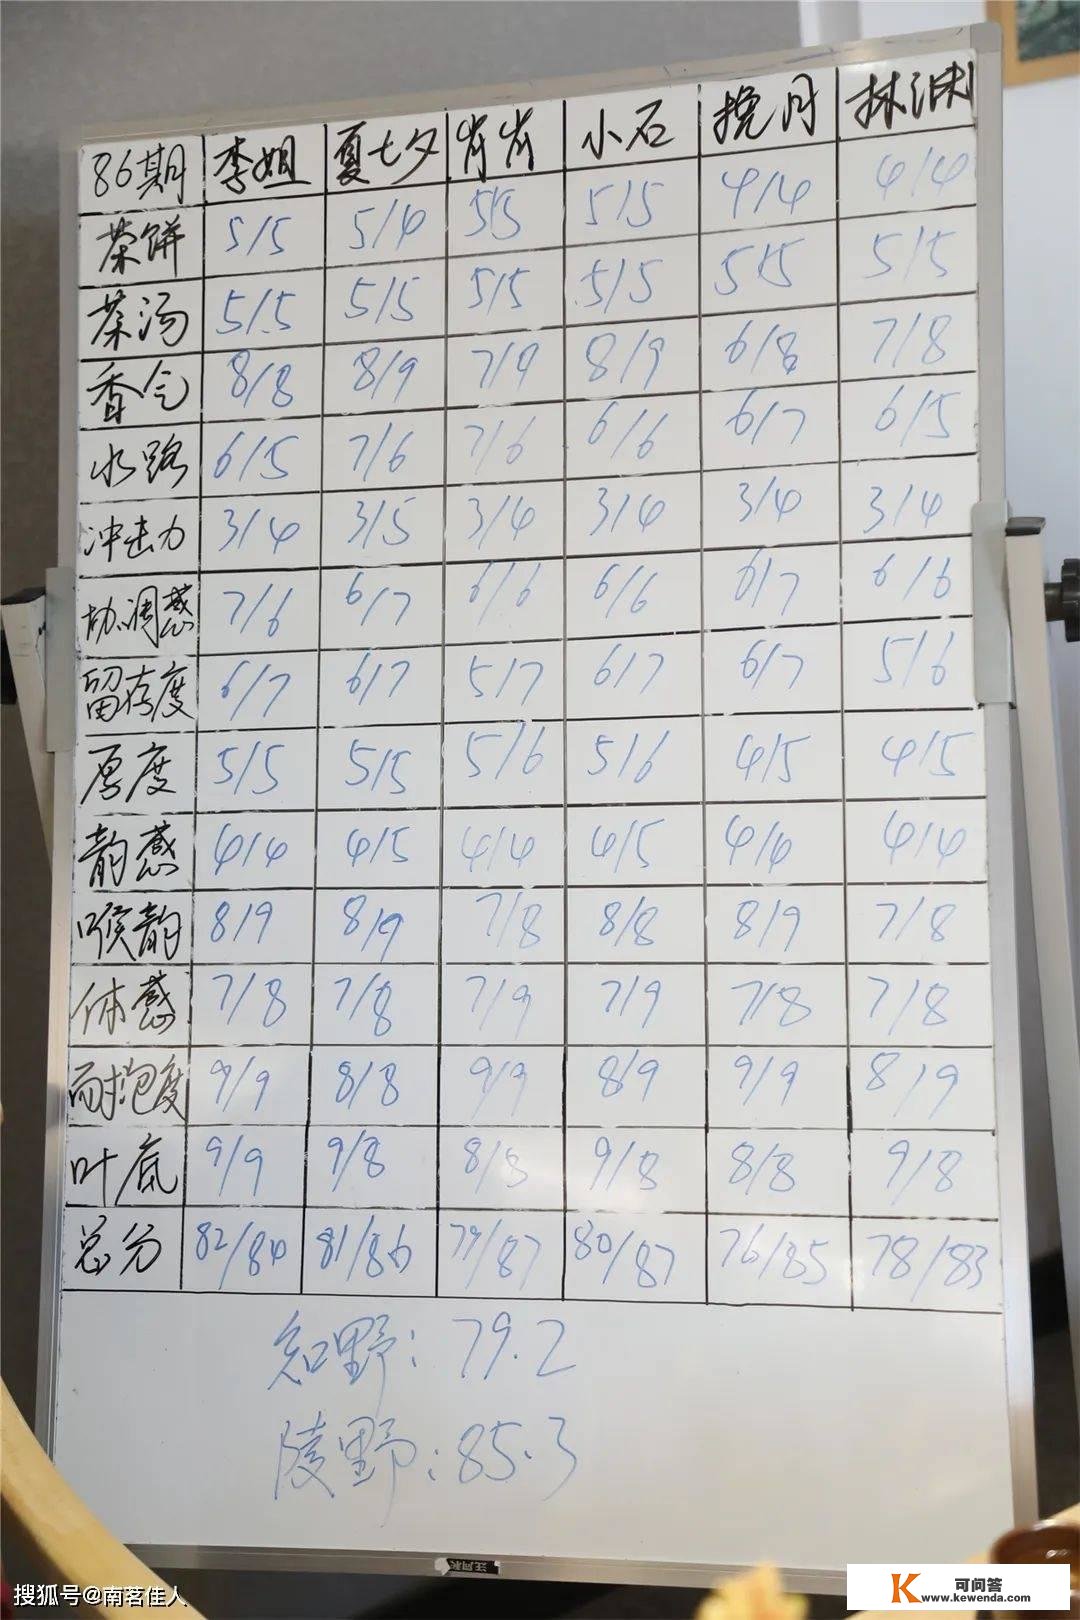 86期 李姐 夏七夕 肖肖 小石 挽月 林渊
茶饼 5/5 5/4 5/5 5/5 4/4 4/4
茶汤 5/5 5/5 5/5 5/5 5/5 5/5
香气 8/8 8/9 7/9 8/9 6/8 7/8
水路 6/5 7/6 7/6 6/6 6/7 6/5
冲击力 3/4 3/5 3/4 3/4 3/4 3/4
协调感 7/6 6/7 6/6 6/6 6/7 6/6
留存度 6/7 6/7 5/7 6/7 6/7 5/6
厚度 5/5 5/5 5/6 5/6 4/5 4/5
韵感 4/4 4/5 4/4 4/5 4/4 4/4
喉韵 8/9 8/9 7/8 8/8 8/9 7/8
体感 7/8 7/8 7/9 7/9 7/8 7/8
耐泡度 9/9 8/8 9/9 8/9 9/9 8/9
叶底 9/9 9/8 8/8 9/8 8/8 9/8
总分 82/84 81/86 79/87 80/87 76/85 78/83
知野：79.2
陵野：85.3
搜狐号@南茗佳人
K 可问答
www.kewenda.com